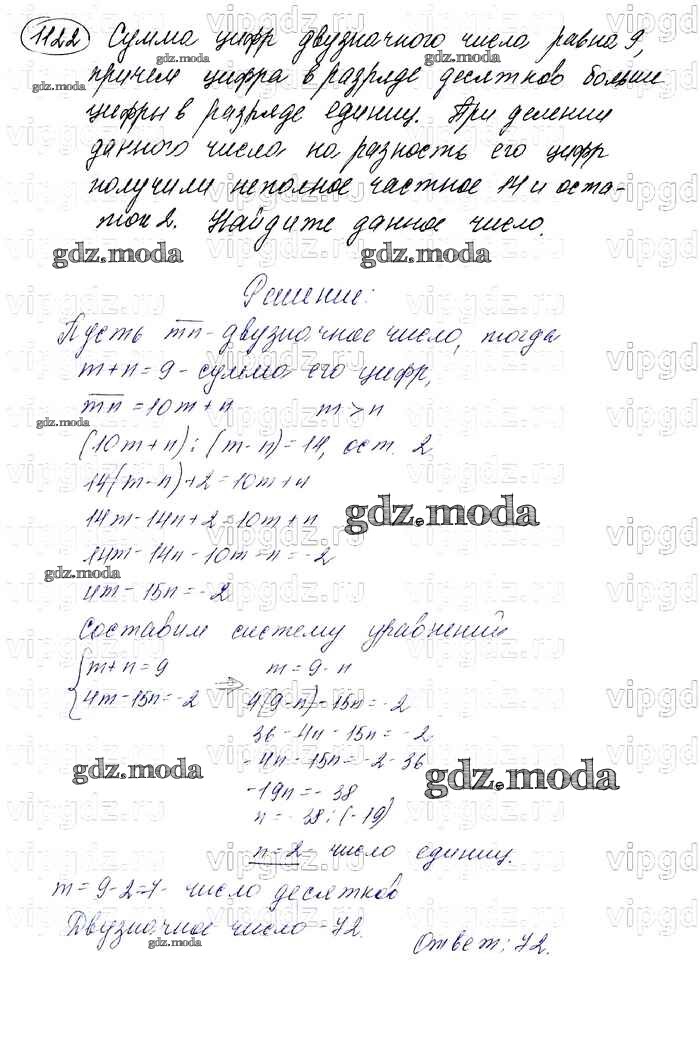 1122 Сумма цифр двузначного числа равна 9,
причем цифра в разряде десятков больше
цифры в разряде единиц. При делении
данного числа на разность его цифр
получили неполное частное 14 и оста-
ток 2. Найдите данное число.
gdz.moda
Решение:
Пусть mn - двузначное число, тогда
m + n = 9 - сумма его цифр,
mn = 10m + n m > n
(10m + n) : (m - n) = 14, ост. 2
14(m - n) + 2 = 10m + n
14m - 14n + 2 = 10m + n
gdz.moda
14m - 14n - 10m - n = -2
4m - 15n = -2
Составим систему уравнений
{m + n = 9 m = 9 - n
{4m - 15n = -2 ⇒ 4(9 - n) - 15n = -2
36 - 4n - 15n = -2
-4n - 15n = -2 - 36
gdz.moda
-19n = -38
n = -38 : (-19)
n = 2 - число единиц.
m = 9 - 2 = 7 - число десятков
Двузначное число - 72.
Ответ: 72.